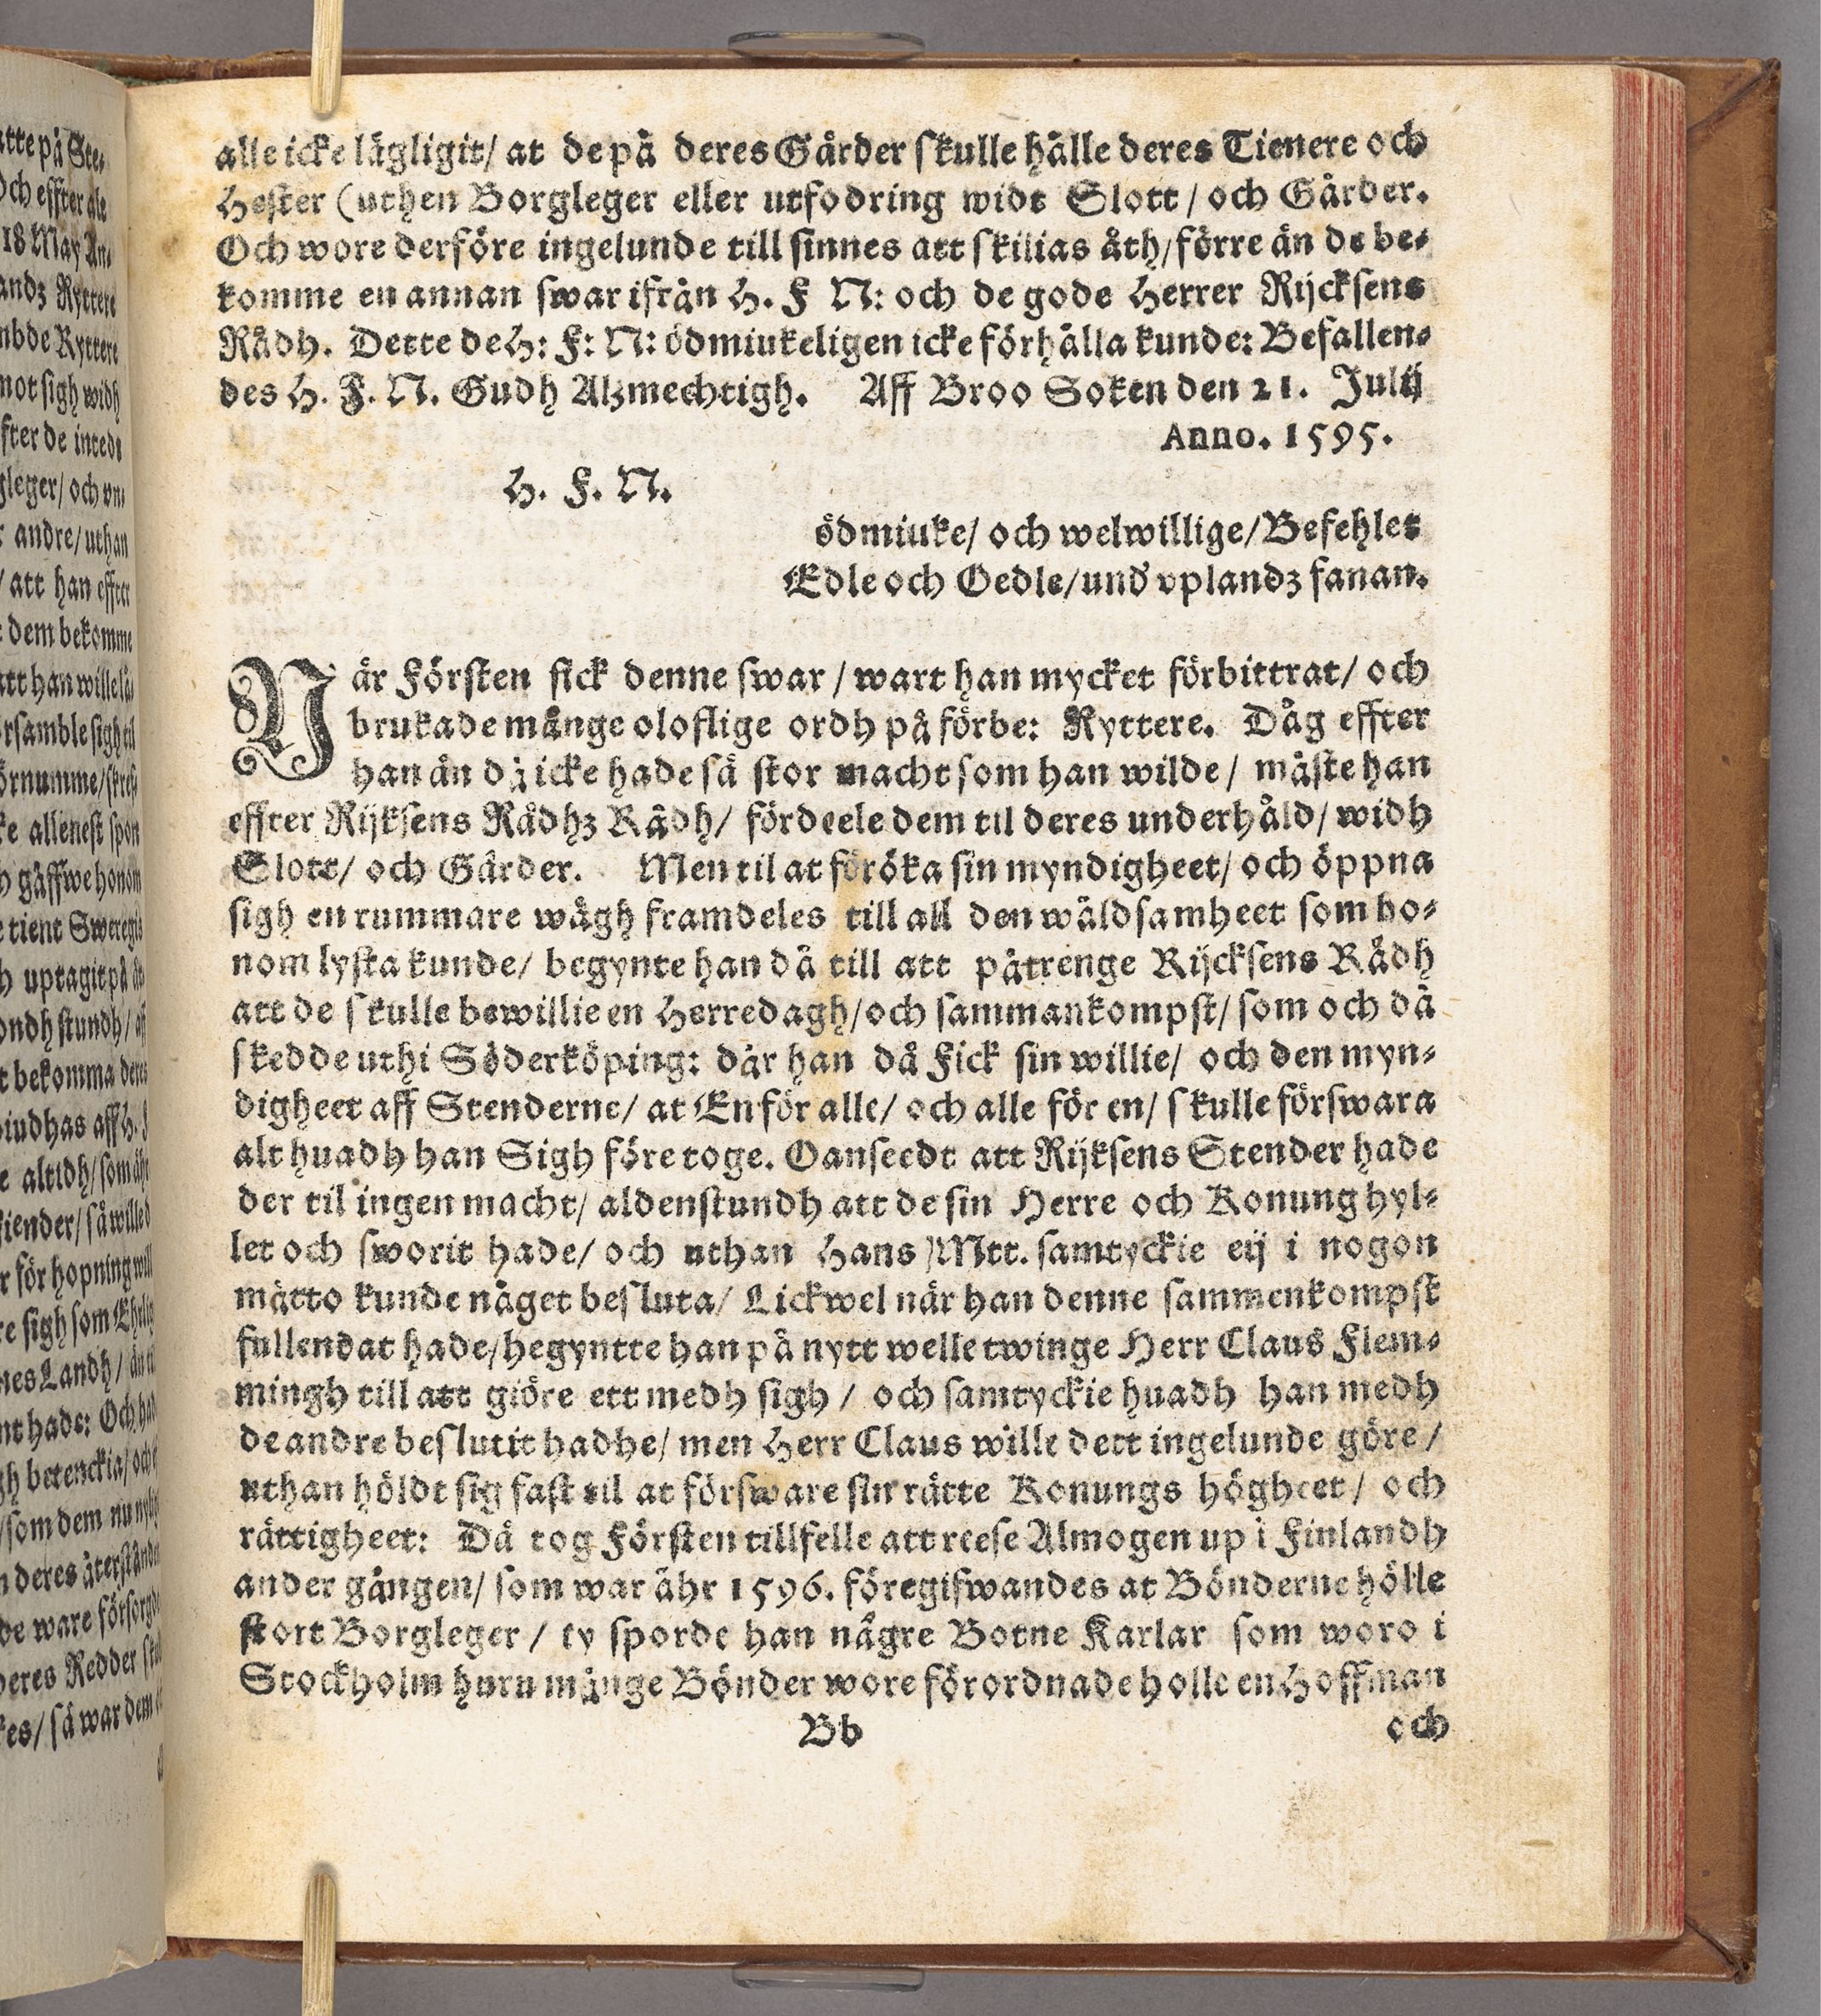 alle icke lägligit/ at de på deres Gårder skulle hälle deres Tienere och
Hester (uthen Borgleger eller utfodring widt Slott/ och Gårder.
Och wore derföre ingelunde till sinnes att skilias åth/ förre än de be-
komme en annan swar ifrån H. F N: och de gode Herrer Rijcksens
Rådh. Dette de H: F: N: ödmiukeligen icke förhälla kunde: Befallen-
des H. F. N. Gudh Alzmechtigh. Aff Broo Soken den 21. Julij
Anno. 1595.
H. F. N.
ödmiuke/ och welwillige/ Befehlet
Edle och Oedle/ und' vplandz fanan.
När Försten fick denne swar/ wart han mycket förbittrat/ och
brukade månge oloflige ordh på förbe: Ryttere. Dåg effter
han än då icke hade så stor macht som han wilde/ måste han
effter Rijksens Rådhz Rådh/ fördeele dem til deres underhåld/ widh
Slott/ och Gårder. Men til at föröka sin myndigheet/ och öppna
sigh en rummare wägh framdeles till all den wäldsamheet som ho-
nom lysta kunde/ begynte han då till att påtrenge Rijcksens Rådh
att de skulle bewillie en Herredagh/ och sammankompst/ som och då
skedde uthi Söderköping: där han då Fick sin willie/ och den myn-
digheet aff Stenderne/ at En för alle/ och alle för en/ skulle förswara
alt huadh han Sigh företoge. Oanseedt att Rijksens Stender hade
der til ingen macht/ aldenstundh att de sin Herre och Konung hyl-
let och sworit hade/ och uthan Hans Mtt. samtyckie eij i nogon
måtto kunde någet besluta/ Lickwel när han denne sammenkompst
fullendat hade/ hegyntte han på nytt welle twinge Herr Claus Flem-
mingh till att giöre ett medh sigh/ och samtyckie huadh han medh
de andre beslutit hadhe/ men Herr Claus wille dett ingelunde göre/
uthan höldt sig fast til at försware sin rätte Konungs högheet/ och
rättigheet: Då tog Försten tillfelle att reese Almogen up i Finlandh
ander gången/ som war åhr 1596. föregifwandes at Bönderne hölle
stort Borgleger/ ty sporde han någre Botne Karlar som woro i
Stockholm huru månge Bönder wore förordnade holle en Hoffman
Bb
och